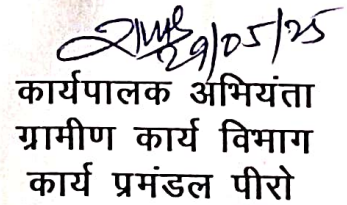 29/05/25
कार्यपालक अभियंता
ग्रामीण कार्य विभाग
कार्य प्रमंडल पीरो